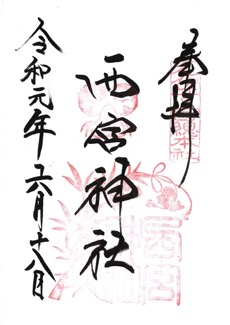 奉拝
西宮神社
令和元年六月十八日
西宮